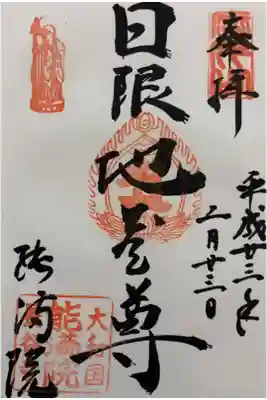 奉拝
平成廿三年
二月廿三日
日限地蔵尊
能満院
大和国
能満院